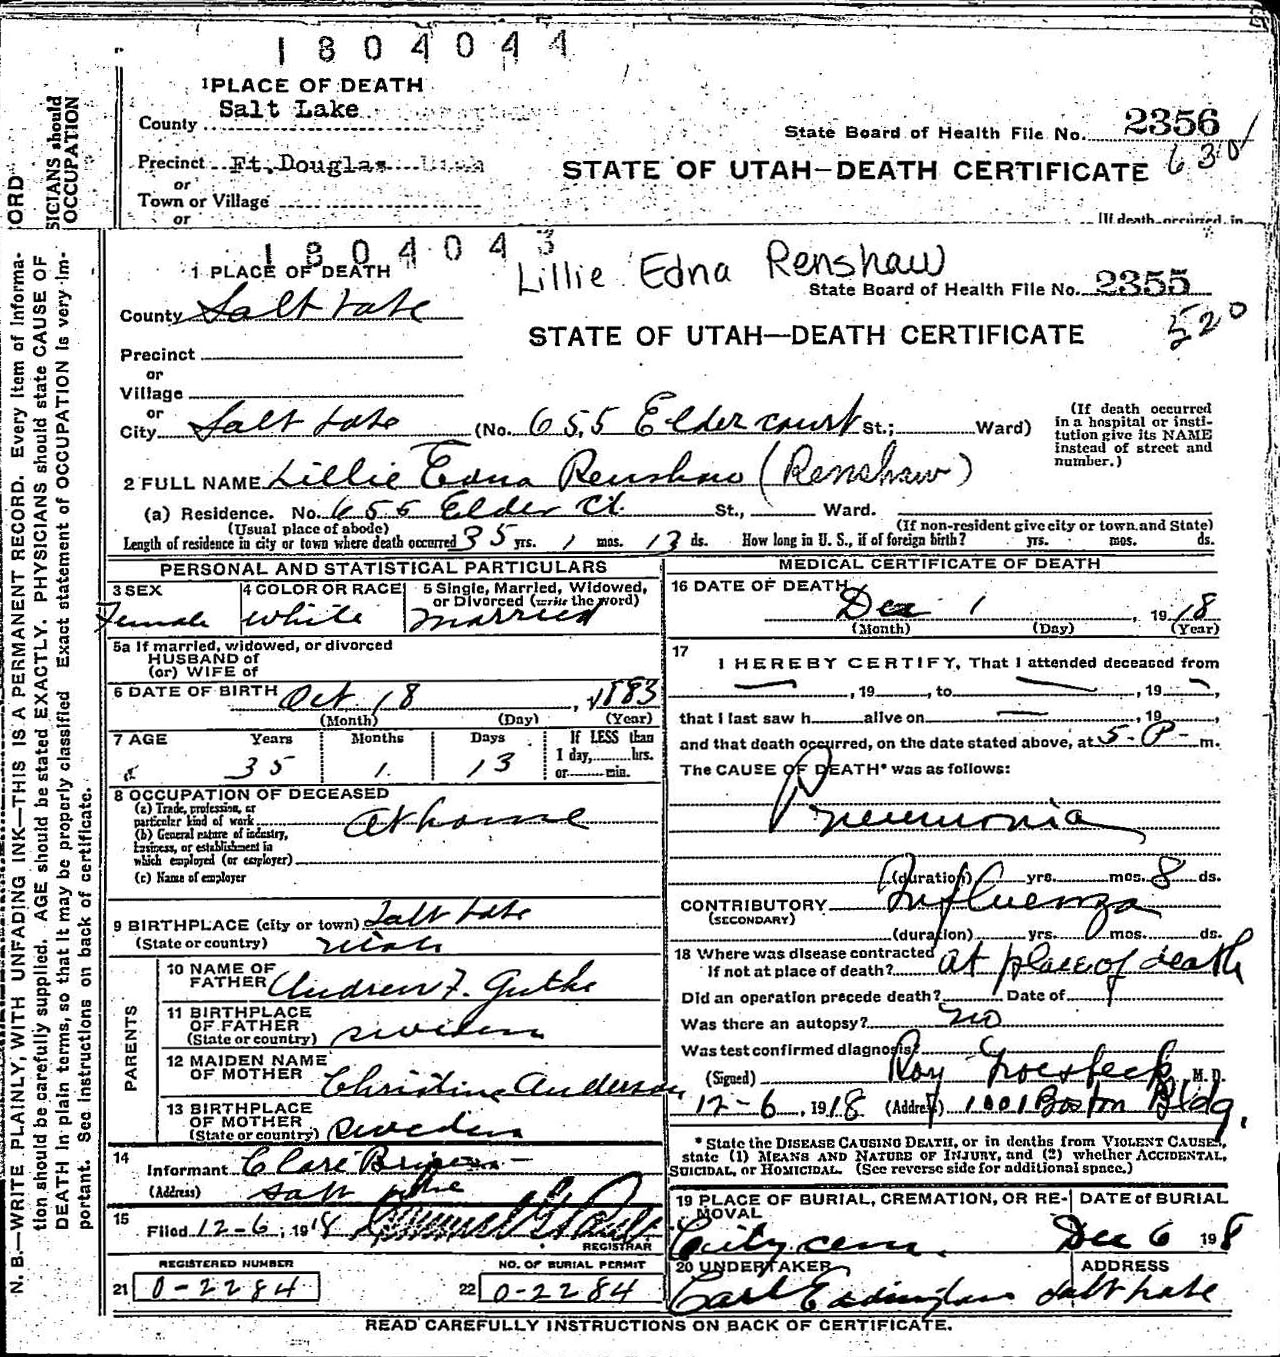 1804044
1 PLACE OF DEATH
Salt Lake
County
State Board of Health File No. 2356
630
Precinct Ft. Douglas
STATE OF UTAH—DEATH CERTIFICATE
or
Town or Village
or
(If death occurred in
ORD
SICIANS should
OCCUPATION
1804043
Lillie Edna Renshaw
1 PLACE OF DEATH
State Board of Health File No. 2355
520
County Salt Lake
STATE OF UTAH—DEATH CERTIFICATE
Precinct
or
Village
or
City Salt Lake (No. 655 Elder court St.; Ward)
(If death occurred
in a hospital or insti-
tution give its NAME
instead of street and
number.)
2 FULL NAME Lillie Edna Renshaw (Renshaw)
(a) Residence. No. 655 Elder Ct. St., Ward.
(Usual place of abode) (If non-resident give city or town and State)
Length of residence in city or town where death occurred 35 yrs. 1 mos. 13 ds. How long in U. S., if of foreign birth? yrs. mos. ds.
PERSONAL AND STATISTICAL PARTICULARS
3 SEX 4 COLOR OR RACE 5 Single, Married, Widowed,
or Divorced (write the word)
Female white married
5a If married, widowed, or divorced
HUSBAND of
(or) WIFE of
6 DATE OF BIRTH Oct 18, 1883
(Month) (Day) (Year)
7 AGE Years Months Days If LESS than
1 day, hrs.
or min.
35 1 13
8 OCCUPATION OF DECEASED
(a) Trade, profession, or
particular kind of work at home
(b) General nature of industry,
business, or establishment in
which employed (or employer)
(c) Name of employer
9 BIRTHPLACE (city or town) Salt Lake
(State or country) Utah
PARENTS
10 NAME OF
FATHER Andrew F. Guthe
11 BIRTHPLACE
OF FATHER
(State or country) Sweden
12 MAIDEN NAME
OF MOTHER Christine Anderson
13 BIRTHPLACE
OF MOTHER
(State or country) Sweden
14
Informant Clare
(Address) Salt Lake
15
Filed 12-6, 1918
REGISTRAR
REGISTERED NUMBER NO. OF BURIAL PERMIT
21 0-2284 22 0-2284
MEDICAL CERTIFICATE OF DEATH
16 DATE OF DEATH
Dec 1, 1918
(Month) (Day) (Year)
17
I HEREBY CERTIFY, That I attended deceased from
, 19 , to , 19 ,
that I last saw h alive on , 19 ,
and that death occurred, on the date stated above, at 5-P-m.
The CAUSE OF DEATH* was as follows:
Pneumonia
(duration) yrs. mos. 8 ds.
CONTRIBUTORY Influenza
(SECONDARY)
(duration) yrs. mos. ds.
18 Where was disease contracted
if not at place of death? at place of death
Did an operation precede death? Date of
Was there an autopsy? no
Was test confirmed diagnosis?
(Signed) Roy Groesbeck M. D.
12-6, 1918 (Address) 1001 Boston Bldg.
* State the DISEASE CAUSING DEATH, or in deaths from VIOLENT CAUSES,
state (1) MEANS AND NATURE OF INJURY, and (2) whether ACCIDENTAL,
SUICIDAL, or HOMICIDAL. (See reverse side for additional space.)
19 PLACE OF BURIAL, CREMATION, OR RE-
MOVAL
DATE of BURIAL
City cem. Dec 6 1918
20 UNDERTAKER ADDRESS
Carl Salt Lake
READ CAREFULLY INSTRUCTIONS ON BACK OF CERTIFICATE.
N. B.—WRITE PLAINLY, WITH UNFADING INK—THIS IS A PERMANENT RECORD. Every item of informa-
tion should be carefully supplied. AGE should be stated EXACTLY. PHYSICIANS should state CAUSE OF
DEATH in plain terms, so that it may be properly classified Exact statement of OCCUPATION is very im-
portant. See instructions on back of certificate.